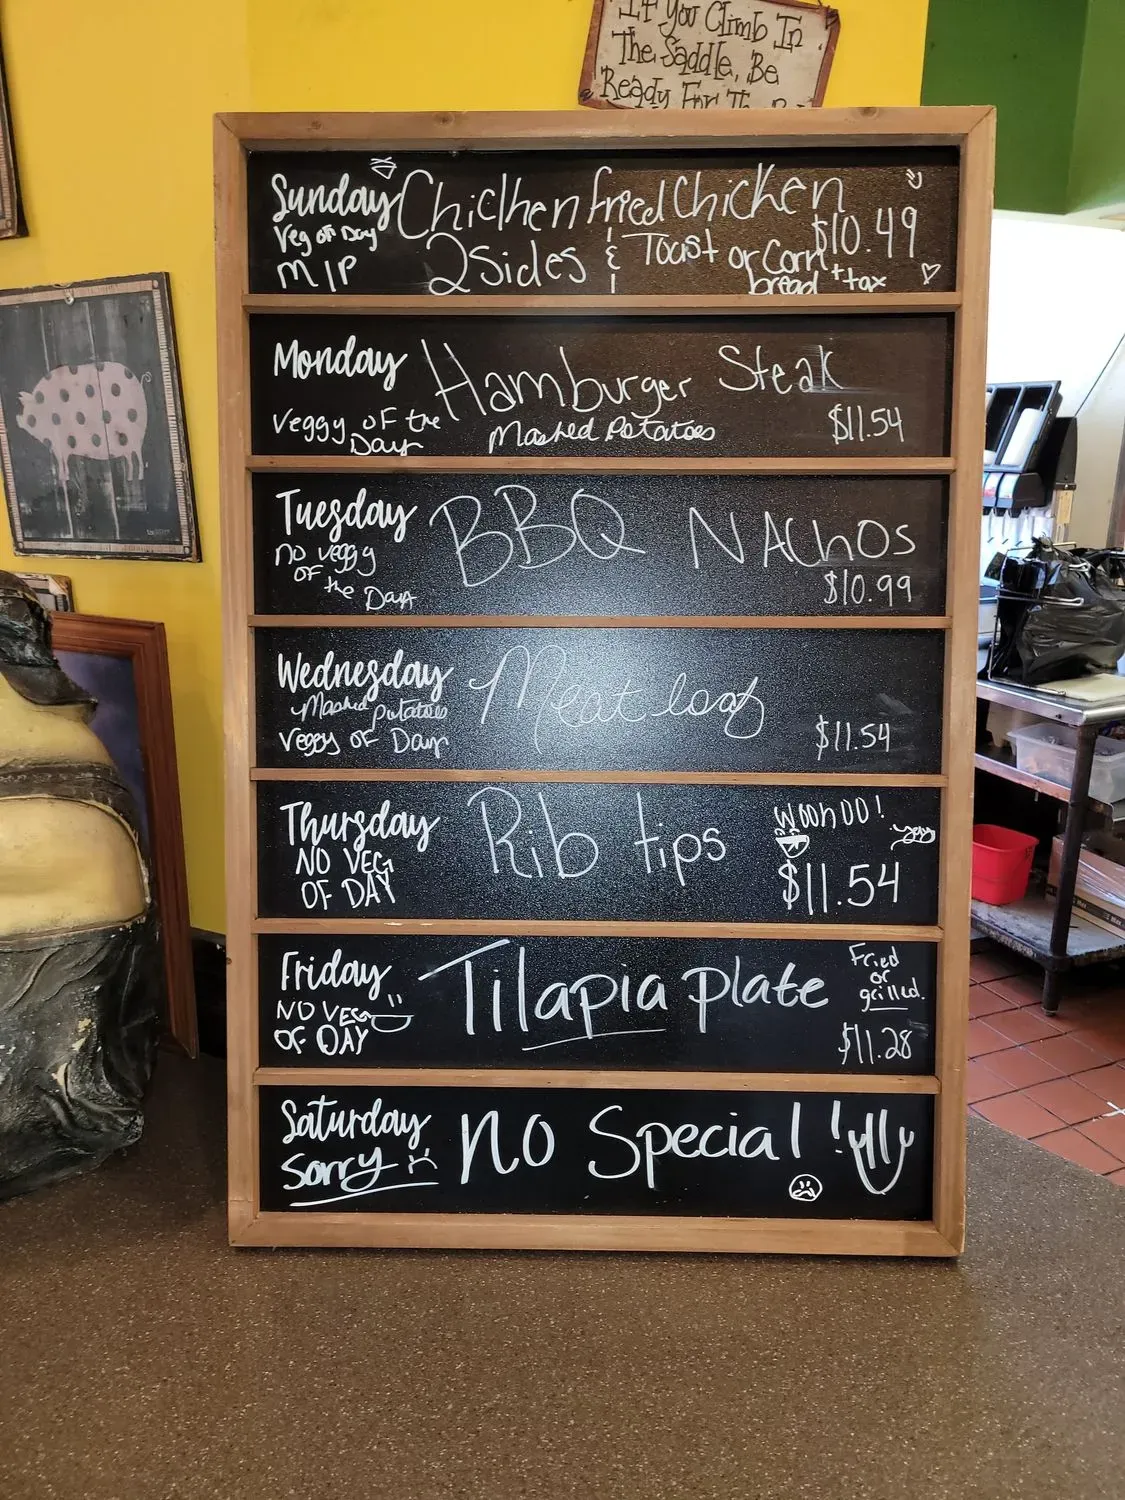 If You Climb In
The Saddle, Be
Ready For The
Sunday
Veg of Day
M | P
Chichen fried Chicken
2 Sides & Toast or Corn bread
$10.49
+ tax
Monday
Veggy of the
Day
Hamburger Steak
Mashed Potatoes
$11.54
Tuesday
no veggy
of the Day
BBQ NAChOs
$10.99
Wednesday
Mashed potatoes
Veggy of Day
Meat loaf
$11.54
Thursday
NO VEG
OF DAY
Rib tips
woohoo!
$11.54
Friday
NO VEG
OF DAY
Tilapia plate
Fried
or
grilled.
$11.28
Saturday
Sorry
No Special!